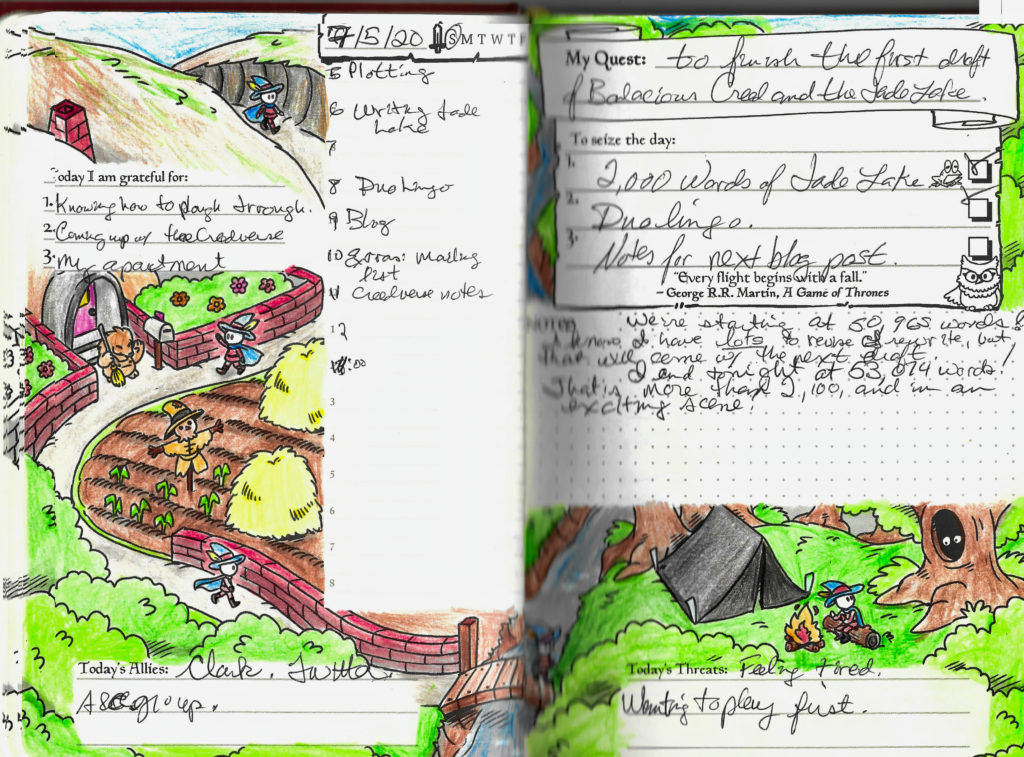 7/5/20 S M T W T F
5 Plotting
6 Writing Jade
Lake
7
8 Duolingo
9 Blog
10 Extras: mailing
list
11 Creedverse notes
12
:00
3
4
5
6
7
8
Today I am grateful for:
1. Knowing how to plough through.
2. Coming up w/ the Creedverse
3. My apartment
Today's Allies: Clark,
group.
My Quest: to finish the first draft
of Bodacious Creed and the Jade Lake.
To seize the day:
1. 2,000 words of Jade Lake
2. Duolingo.
3. Notes for next blog post.
"Every flight begins with a fall."
– George R.R. Martin, A Game of Thrones
NOTES: We're starting at 50,965 words!
I know I have lots to revise & rewrite, but
that will come w/ the next draft.
I end tonight at 53,074 words!
That's more than 2,100, and in an
exciting scene!
Today's Threats: Feeling tired.
Wanting to play first.